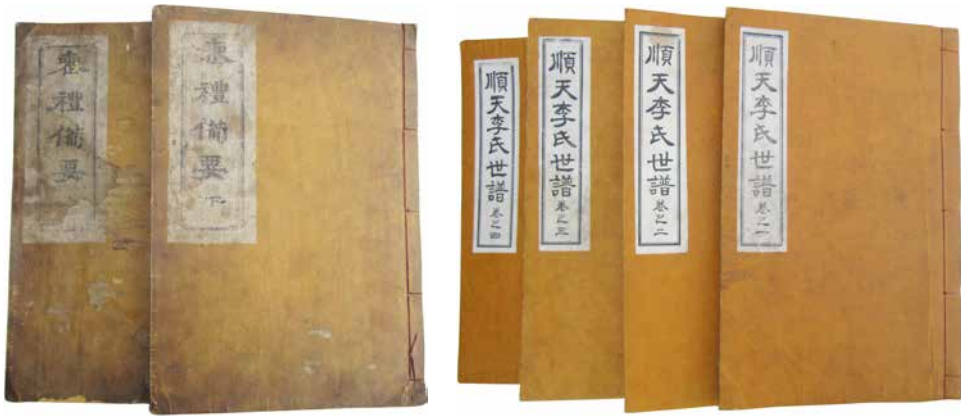 喪禮備要
喪禮備要 下
順天李氏世譜 卷之四
順天李氏世譜 卷之三
順天李氏世譜 卷之二
順天李氏世譜 卷之一